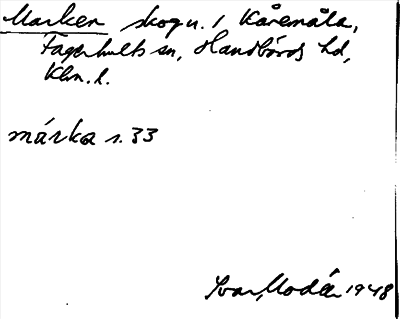 Marken skogn. i Kåremåla,
Fagerhults sn, Handbörds hd,
Klm. l.
márka s. 33
Ivar Modéer 1948